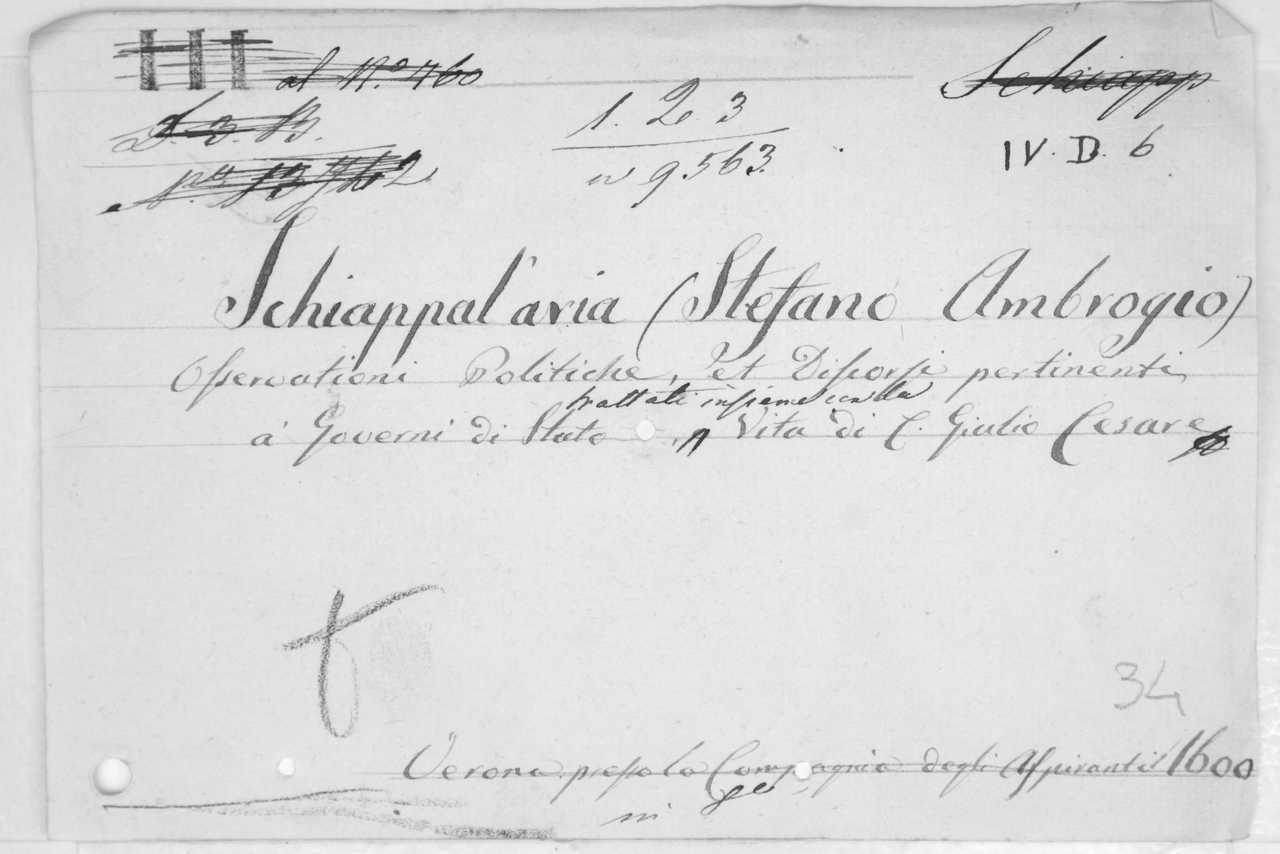 III al N.º 460
Schiapp
1. 2. 3
IV. D. 6
n 9563.
Schiappal'aria (Stefano Ambrogio)
Osservationi Politiche, et Discorsi pertinenti
trattati insieme con la
a' Governi di Stato Vita di C. Giulio Cesare
34
Verona presso la Compagnia degli Aspiranti 1600
in 4º